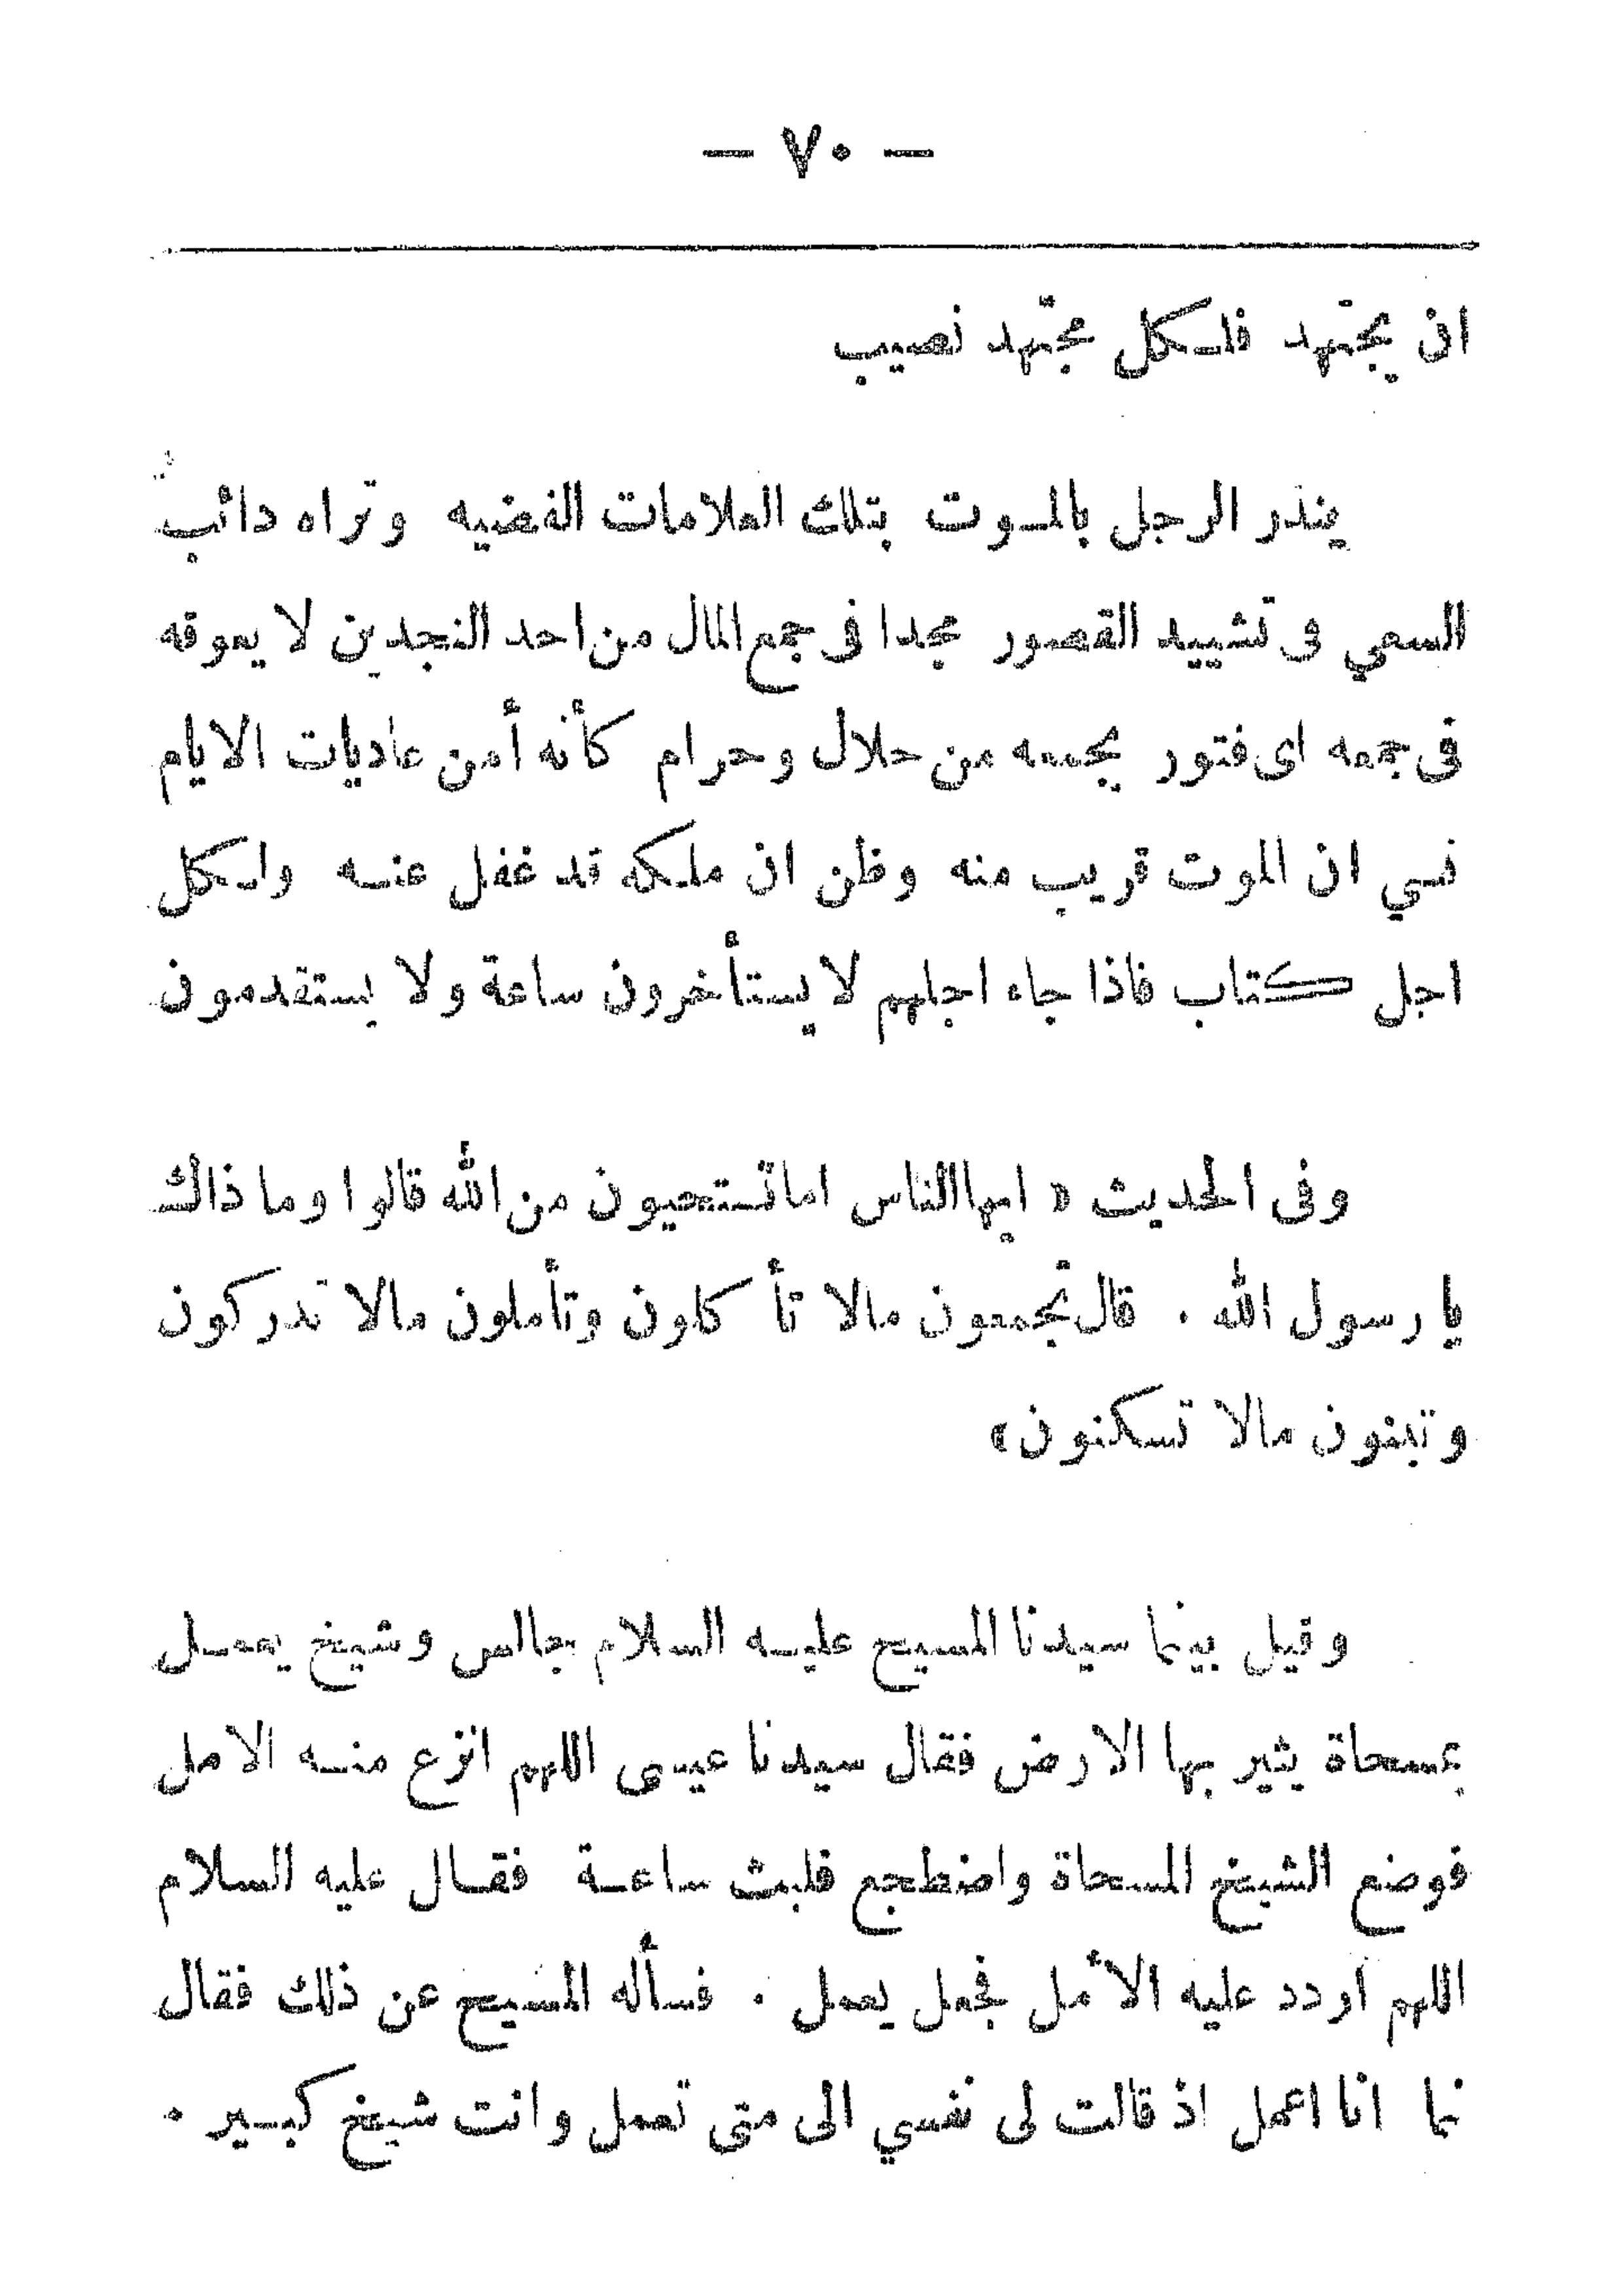 — ٧٠ —
ان يجتهد فلكل مجتهد نصيب
ينذر الرجل بالموت بتلك العلامات الفضيه وتراه دائب
السعي فى تشييد القصور مجدا فى جمع المال من احد النجدين لا يعوقه
فى جمعه اى فتور يجمعه من حلال وحرام كأنه أمن عاديات الايام
نسي ان الموت قريب منه وظن ان ملكه قد غفل عنه ولكل
اجل كتاب فاذا جاء اجلهم لا يستأخرون ساعة ولا يستقدمون
وفى الحديث « ايها الناس اما تستحيون من الله قالوا وما ذاك
يا رسول الله . قال تجمعون مالا تأكلون وتأملون مالا تدركون
وتبنون مالا تسكنون »
وقيل بينما سيدنا المسيح عليه السلام جالس وشيخ يعمل
بمسحاة يثير بها الارض فقال سيدنا عيسى اللهم انزع منه الامل
فوضع الشيخ المسحاة واضطجع فلبث ساعة فقال عليه السلام
اللهم اردد عليه الأمل فجعل يعمل . فسأله المسيح عن ذلك فقال
انا اعمل اذ قالت لى نفسي الى متى تعمل وانت شيخ كبير .